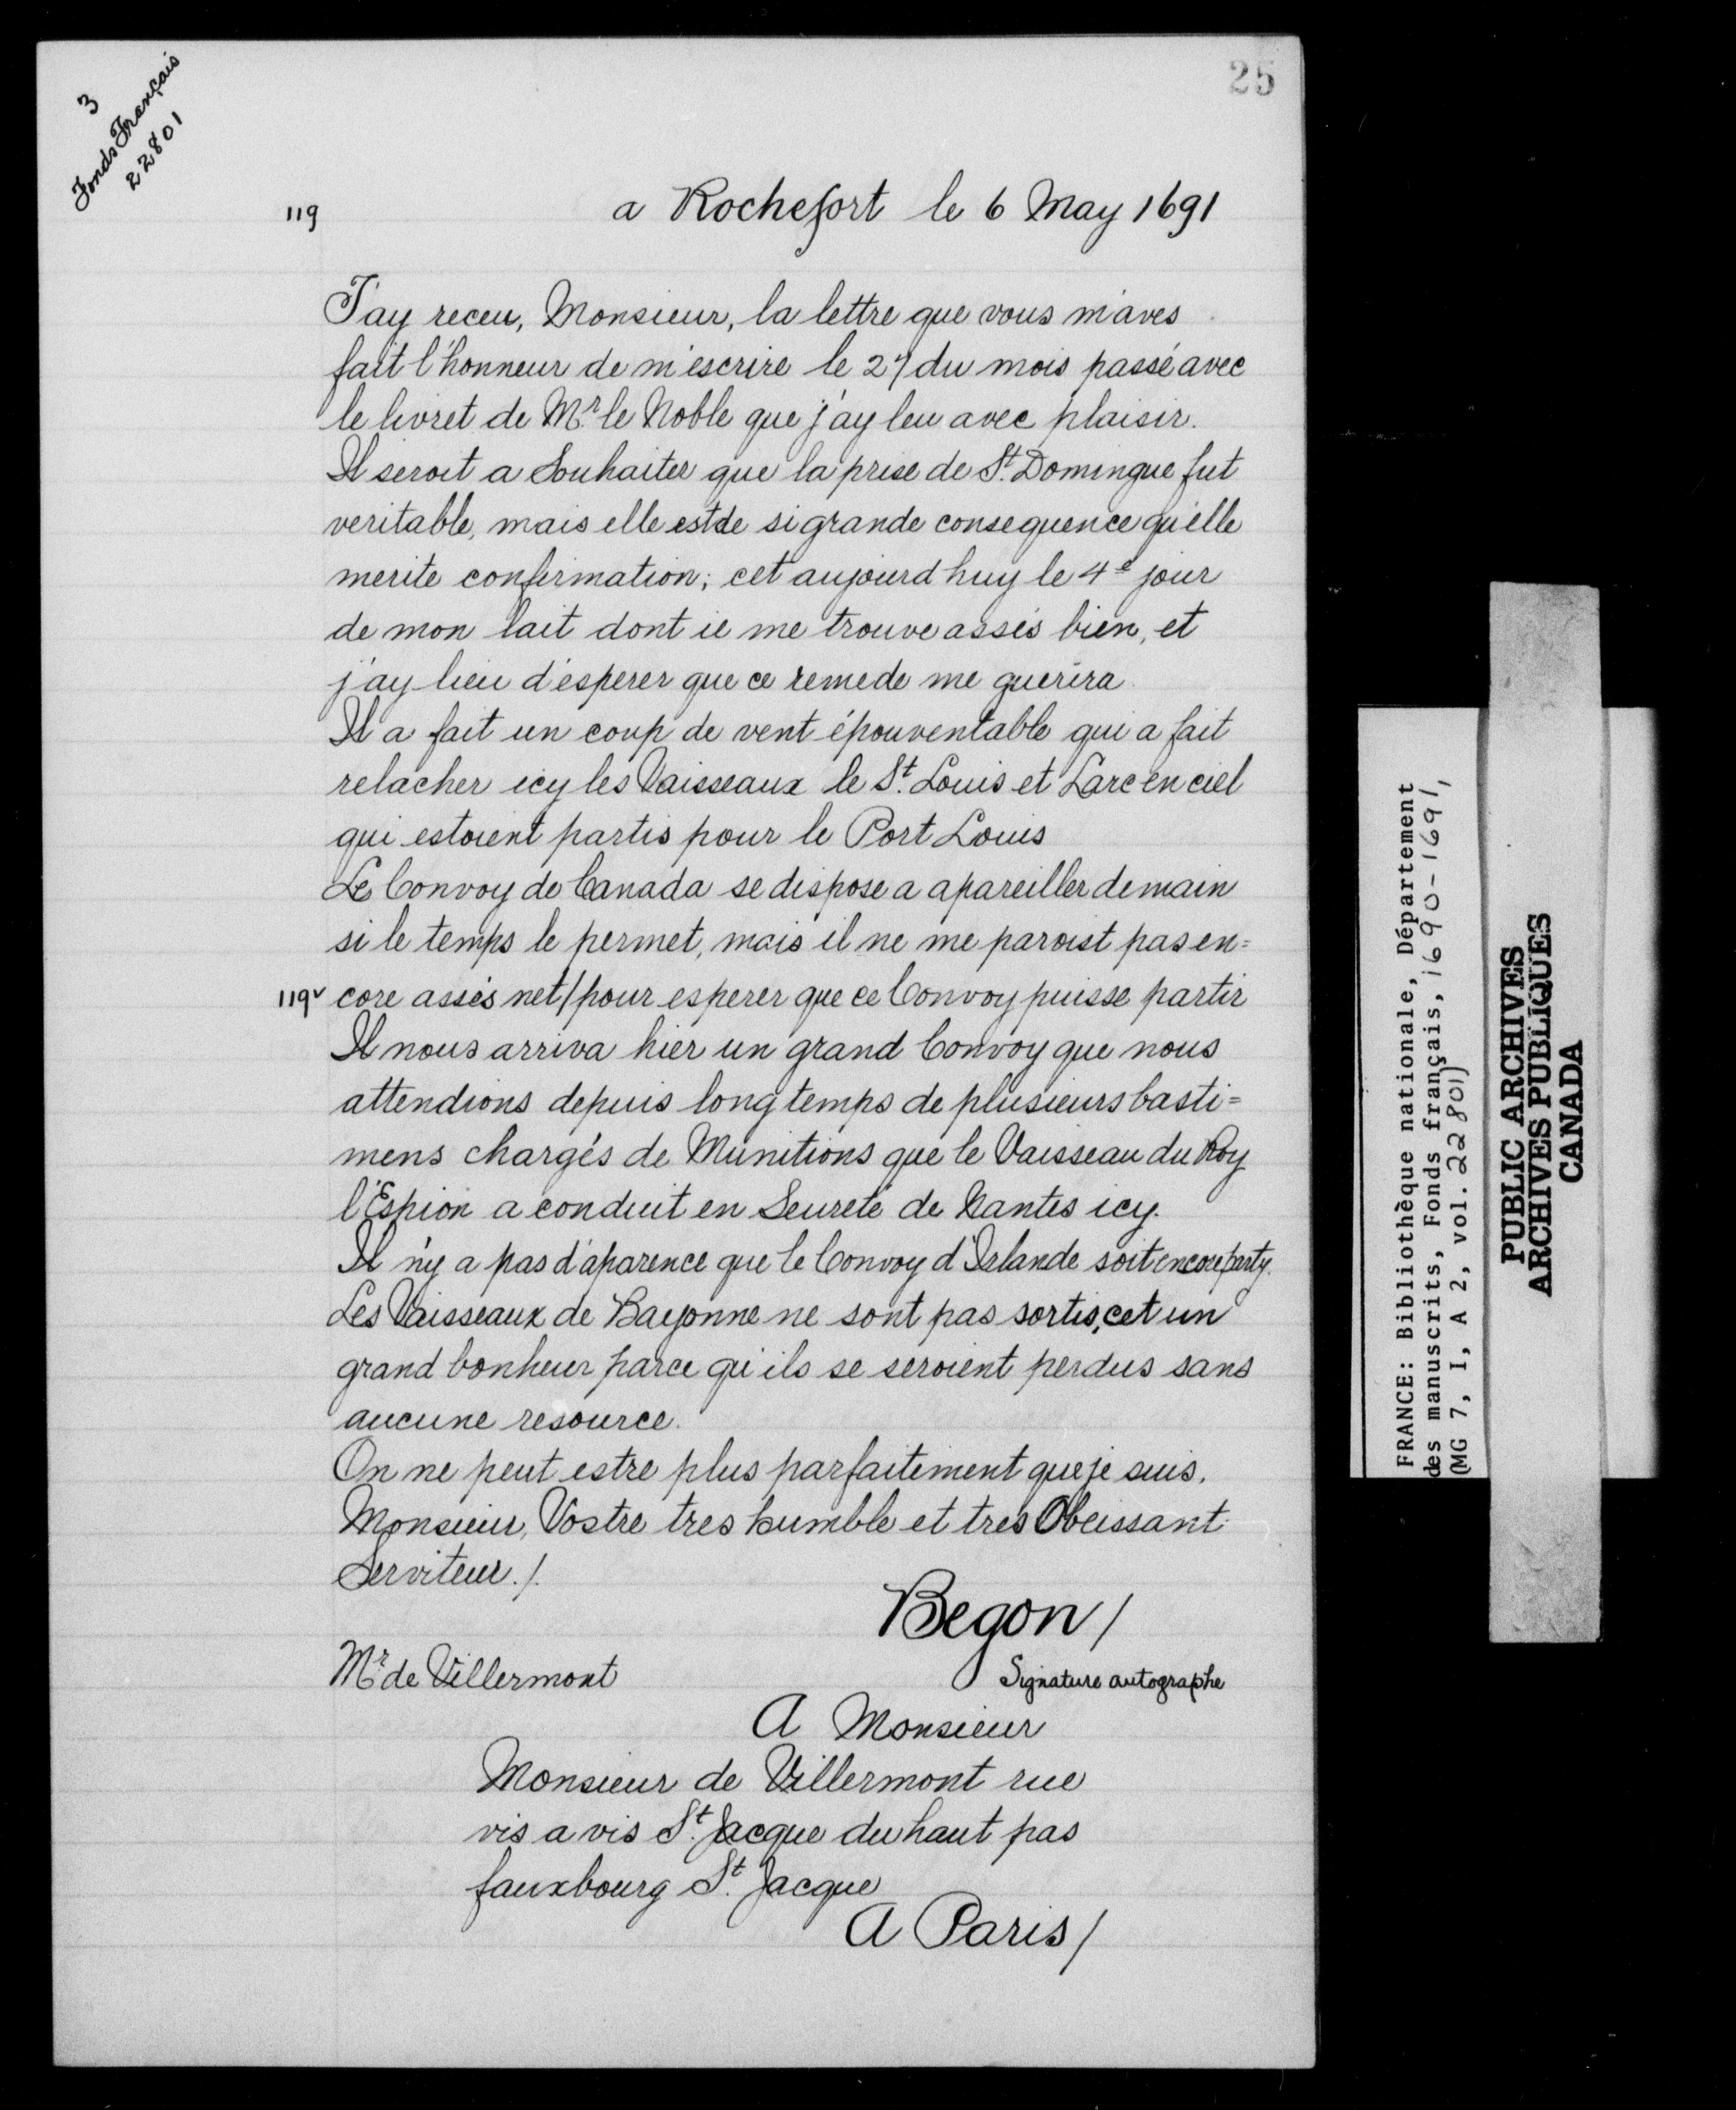 25
3
Fonds Français
22801
119
a Rochefort le 6 May 1691
J'ay receu, Monsieur, la lettre que vous m'aves
fait l'honneur de m'escrire le 27 du mois passé avec
le livret de Mr. le Noble que j'ay leu avec plaisir.
Il seroit a Souhaiter que la prise de St. Domingue fut
veritable, mais elle est de si grande consequence qu'elle
merite confirmation; cet aujourd huy le 4e jour
de mon lait dont ie me trouve assés bien, et
j'ay lieu d'esperer que ce remede me guerira
Il a fait un coup de vent épouventable qui a fait
relacher icy les Vaisseaux le St. Louis et Larc en ciel
qui estoient partis pour le Port Louis
Le Convoy de Canada se dispose a apareiller demain
si le temps le permet, mais il ne me paroist pas en=
119v core assés net/pour esperer que ce Convoy puisse partir
Il nous arriva hier un grand Convoy que nous
attendions depuis long temps de plusieurs basti=
mens chargés de Munitions que le Vaisseau du Roy
l'Espion a conduit en Seureté de Nantes icy.
Il n'y a pas d'aparence que le Convoy d'Irlande soit encore party.
Les Vaisseaux de Bayonne ne sont pas sortis, cet un
grand bonheur parce qu'ils se seroient perdus sans
aucune resource.
On ne peut estre plus parfaitement que je suis.
Monsieur, Vostre tres humble et tres Obeissant
Serviteur./.
Begon/
Mr. de Villermont
Signature autographe
A Monsieur
Monsieur de Villermont rue
vis a vis St. Jacque du haut pas
fauxbourg St. Jacque
A Paris/
FRANCE: Bibliothèque nationale, Département
des manuscrits, Fonds français, 1690-1691,
(MG 7, I, A 2, vol. 22801)
PUBLIC ARCHIVES
ARCHIVES PUBLIQUES
CANADA